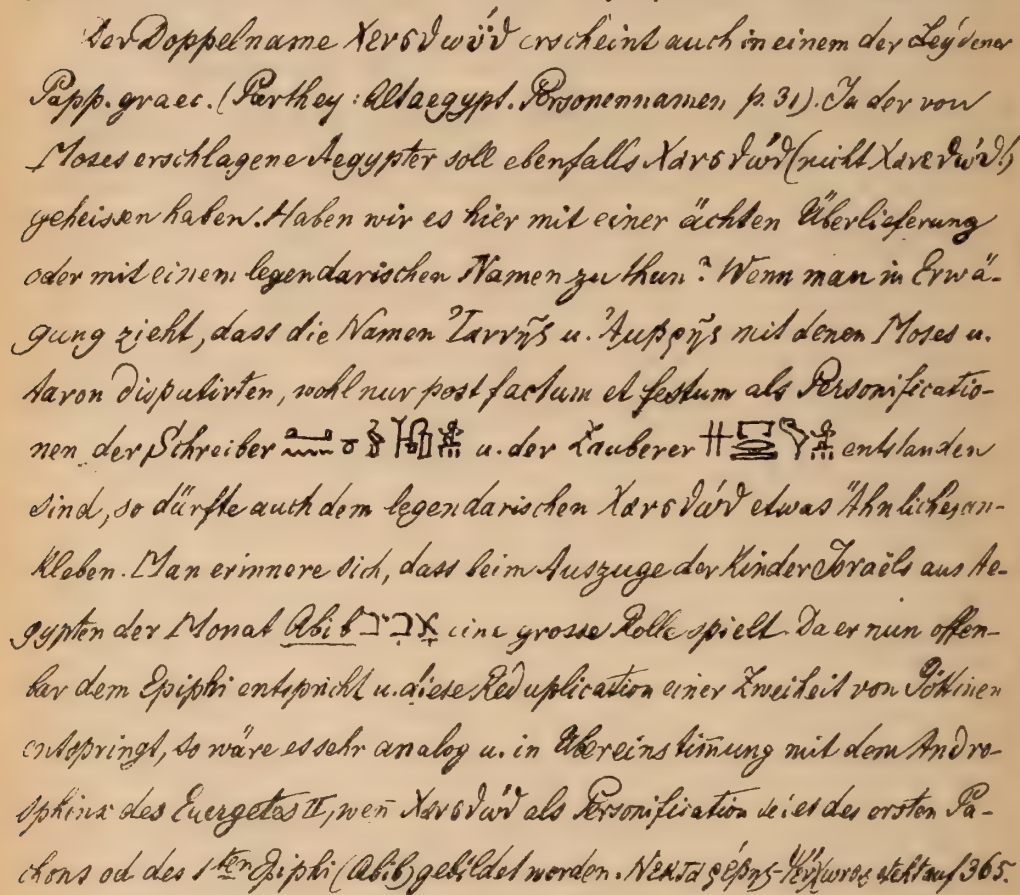 Der Doppelname Χενσθωύθ erscheint auch in einem der Leydener
Papp. graec. (Parthey: Altaegypt. Personennamen p. 31). Ja der von
Moses erschlagene Aegypter soll ebenfalls Χανσθώθ (nicht Χανεθώθ!)
geheissen haben. Haben wir es hier mit einer ächten Überlieferung
oder mit einem legendarischen Namen zu thun? Wenn man in Erwä-
gung zieht, dass die Namen Ἰαννῆς u. mit denen Moses u.
Aaron disputirten, wohl nur post factum et festum als Personificatio-
nen der Schreiber u. der Zauberer entstanden
sind, so dürfte auch dem legendarischen Χανσθώθ etwas Ähnliches an-
kleben. Man erinnere sich, dass beim Auszuge der Kinder Israëls aus Ae-
gypten der Monat Abib אביב eine grosse Rolle spielt. Da er nun offen-
bar dem Epiphi entspricht u. diese Reduplication einer Zweiheit von Göttinen
entspringt, so wäre es sehr analog u. in Übereinstim̄ung mit dem Andro-
sphinx des Euergetes II, wen̄ Χανσθώθ als Personification sei es des ersten Pa-
chons od des 1ten Epiphi (Abib) gebildet worden. steht auf 365.